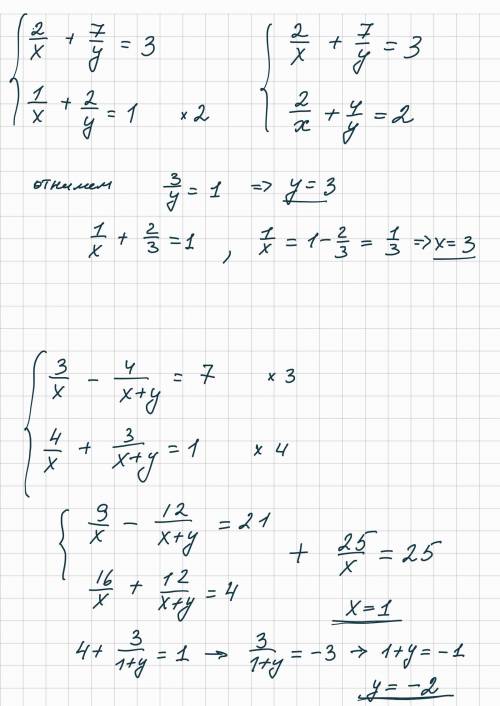 { 2/x + 7/y = 3
1/x + 2/y = 1 × 2
{ 2/x + 7/y = 3
2/x + 4/y = 2
отнимем 3/y = 1 => y = 3
1/x + 2/3 = 1 , 1/x = 1 - 2/3 = 1/3 => x = 3
{ 3/x - 4/(x+y) = 7 × 3
4/x + 3/(x+y) = 1 × 4
{ 9/x - 12/(x+y) = 21
16/x + 12/(x+y) = 4
+ 25/x = 25
x = 1
4 + 3/(1+y) = 1 → 3/(1+y) = -3 → 1+y = -1
y = -2